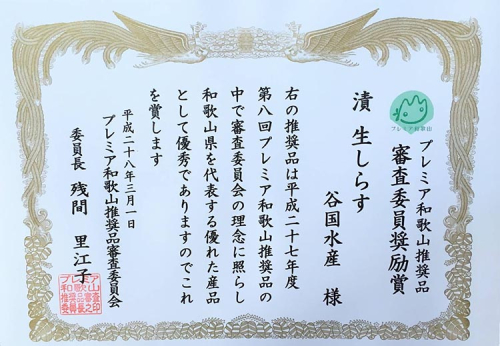 プレミア和歌山
プレミア和歌山推奨品
審査委員奨励賞
漬 生しらす
谷国水産 様
右の推奨品は平成二十七年度
第八回プレミア和歌山推奨品の
中で審査委員会の理念に照らし
和歌山県を代表する優れた産品
として優秀でありますのでこれ
を賞します
平成二十八年三月一日
プレミア和歌山推奨品審査委員会
委員長 残間 里江子